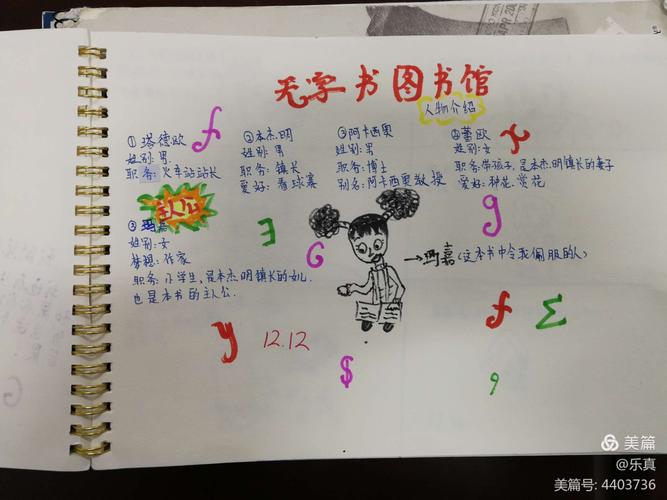 无字书图书馆
人物介绍
①塔德欧
姓别:男
职务:火车站站长
②本杰明
姓别:男
职务:镇长
爱好:看球赛
③阿卡西奥
姓别:男
职务:博士
别名:阿卡西奥教授
④蕾欧
姓别:女
职务:带孩子,是本杰明镇长的妻子
爱好:种花、赏花
主人公
玛嘉
姓别:女
梦想:作家
职务:小学生,是本杰明镇长的女儿
也是本书的主人公.
→玛嘉(这本书中令我佩服的人)
f
x
g
G
y
12.12
f
Σ
$
9
美篇
@乐真
美篇号: 4403736